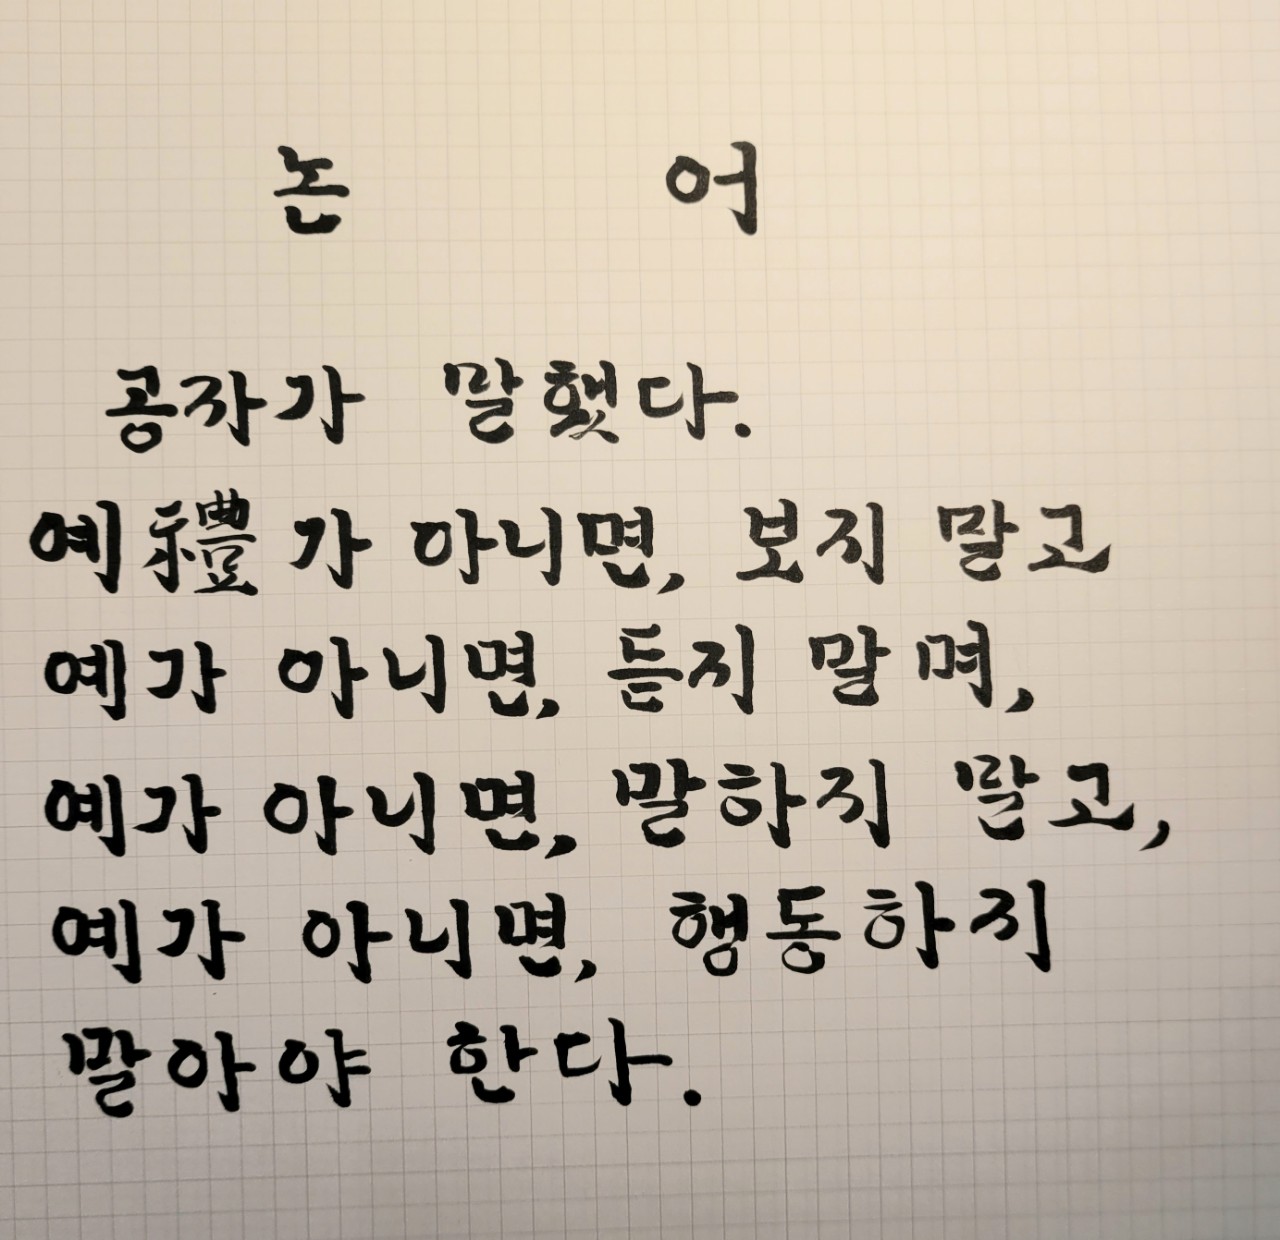 논 어
공자가 말했다.
예禮가 아니면, 보지 말고
예가 아니면, 듣지 말며,
예가 아니면, 말하지 말고,
예가 아니면, 행동하지
말아야 한다.